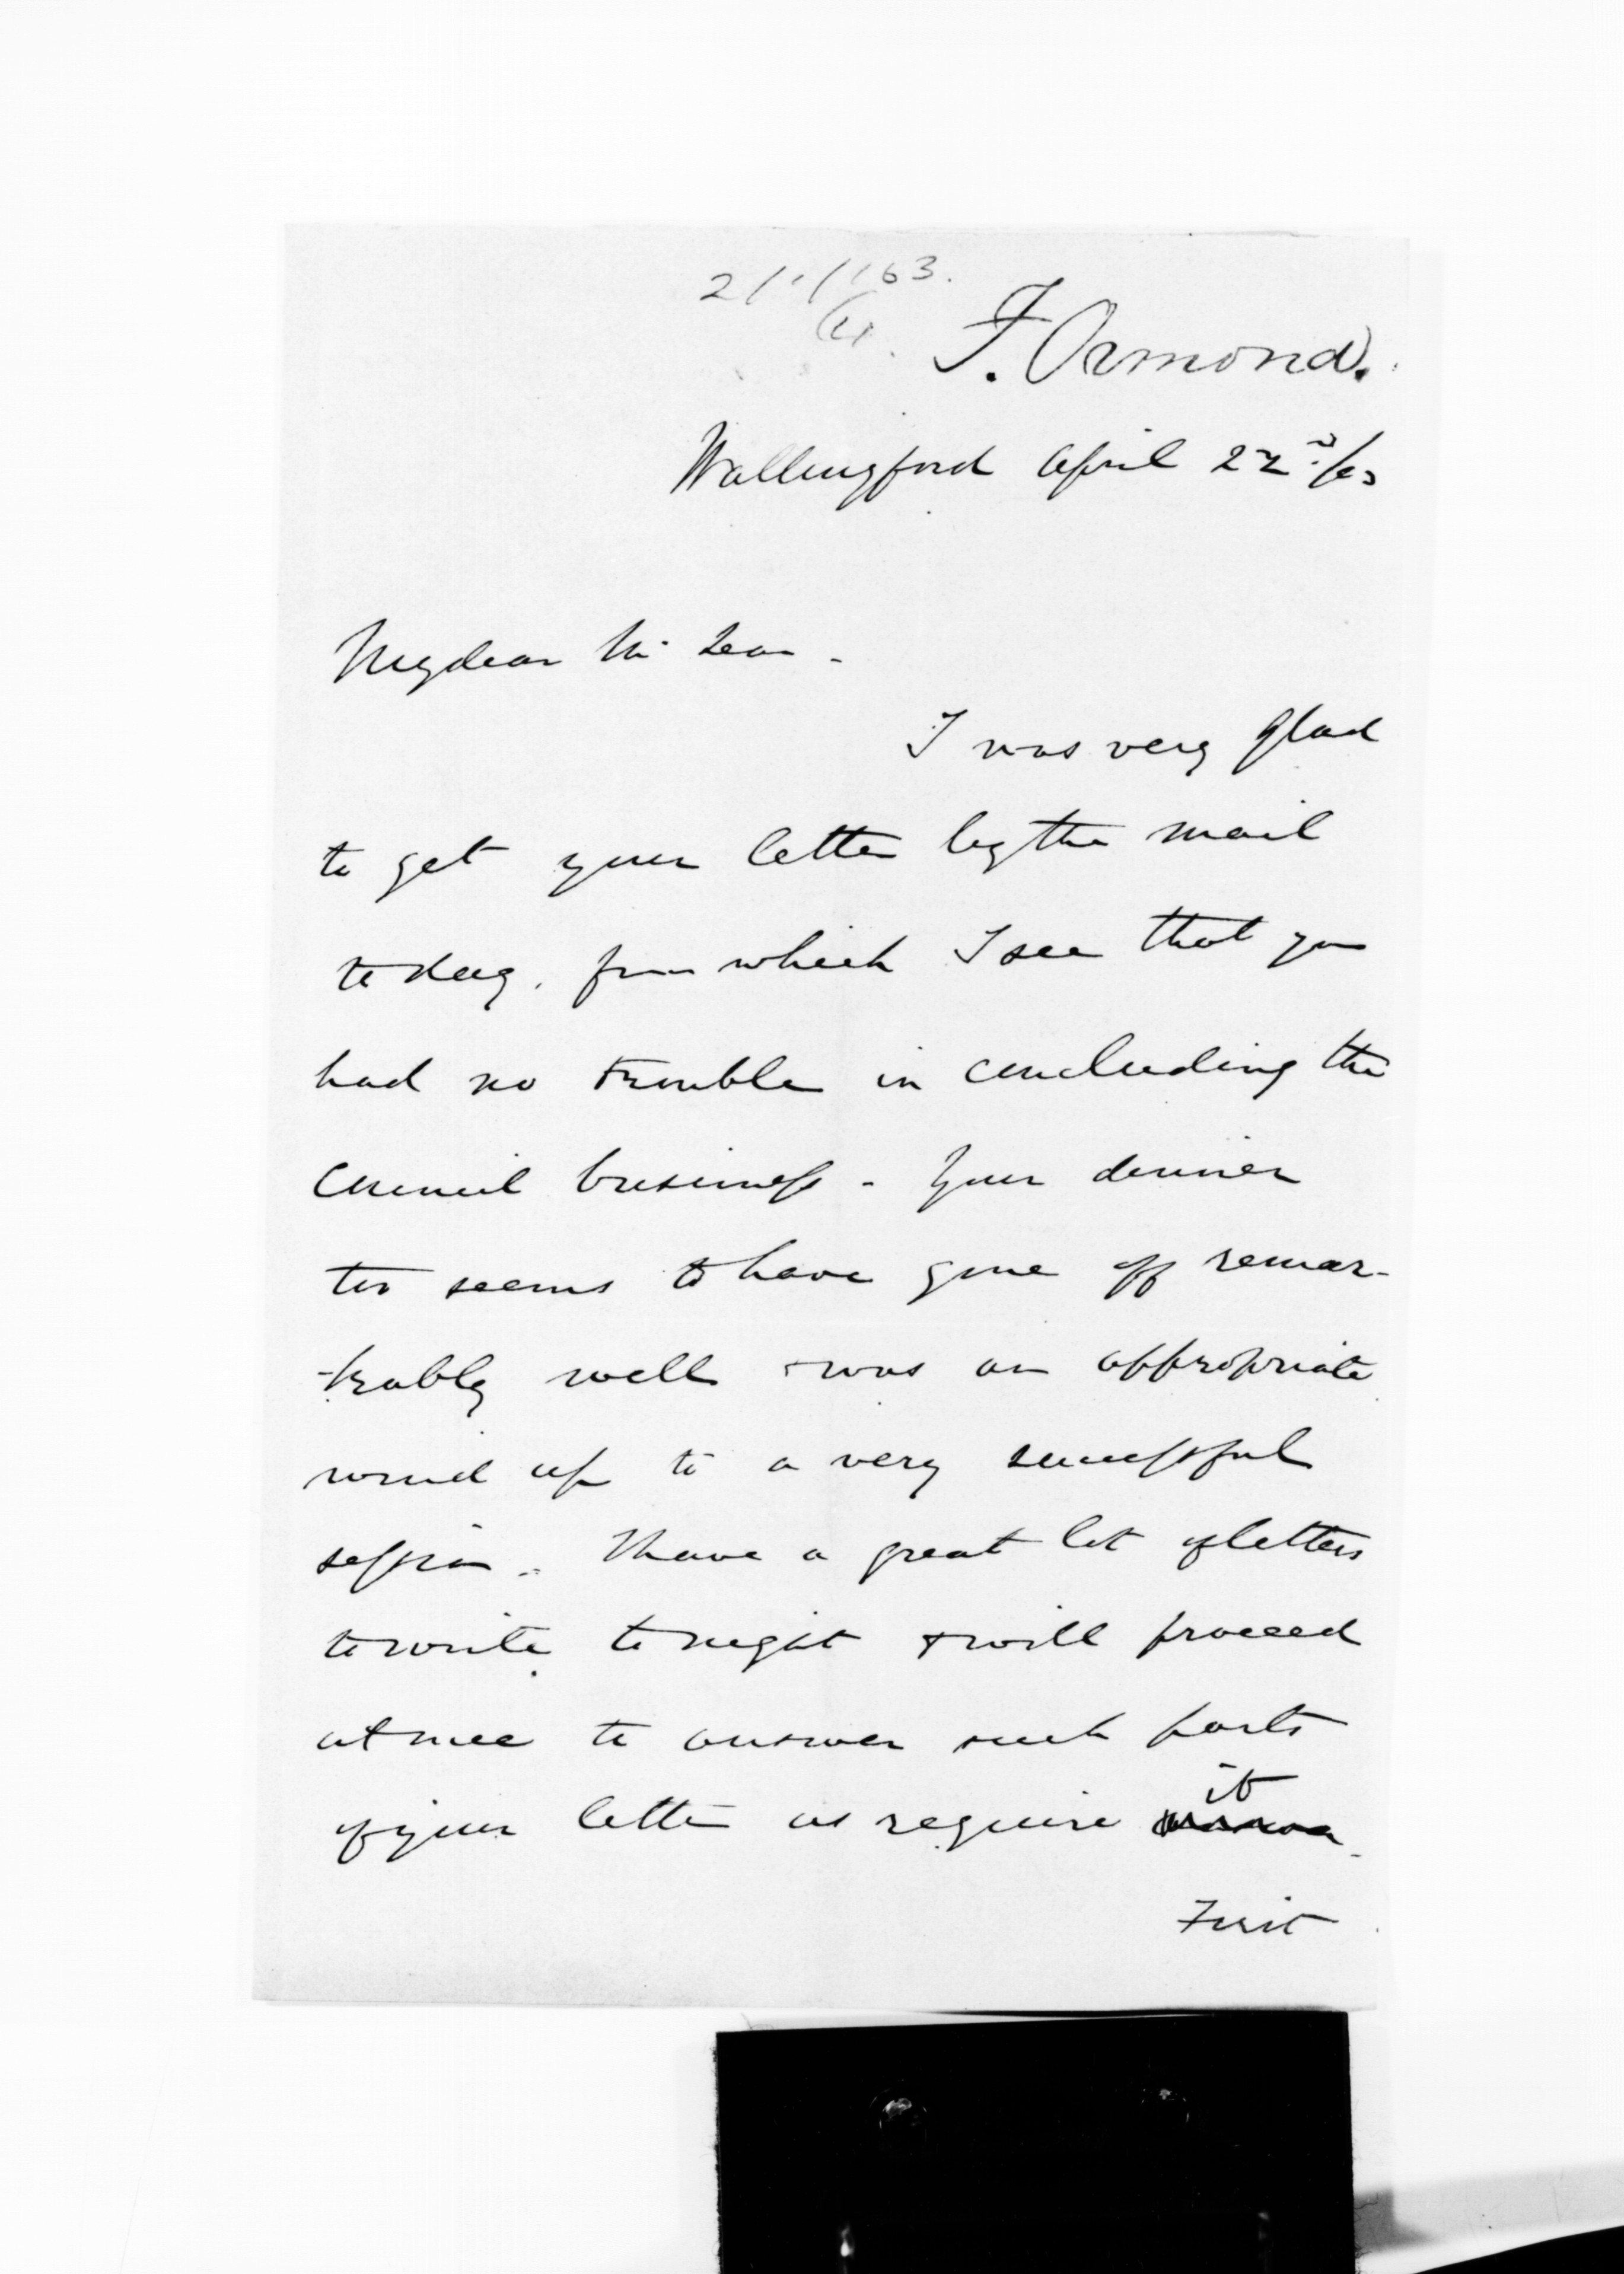 2/1/163.
F. Ormond.
Wallingford April 22nd/63
My dear McLean -
I was very glad
to get your letter by the mail
to day, from which I see that you
had no trouble in concluding the
Council business - Your dinner
too seems to have gone off remar-
-kably well & was an appropriate
wind up to a very successful
session. I have a great lot of letters
to write to night & will proceed
at once to answer such parts
of your letter as require it
First